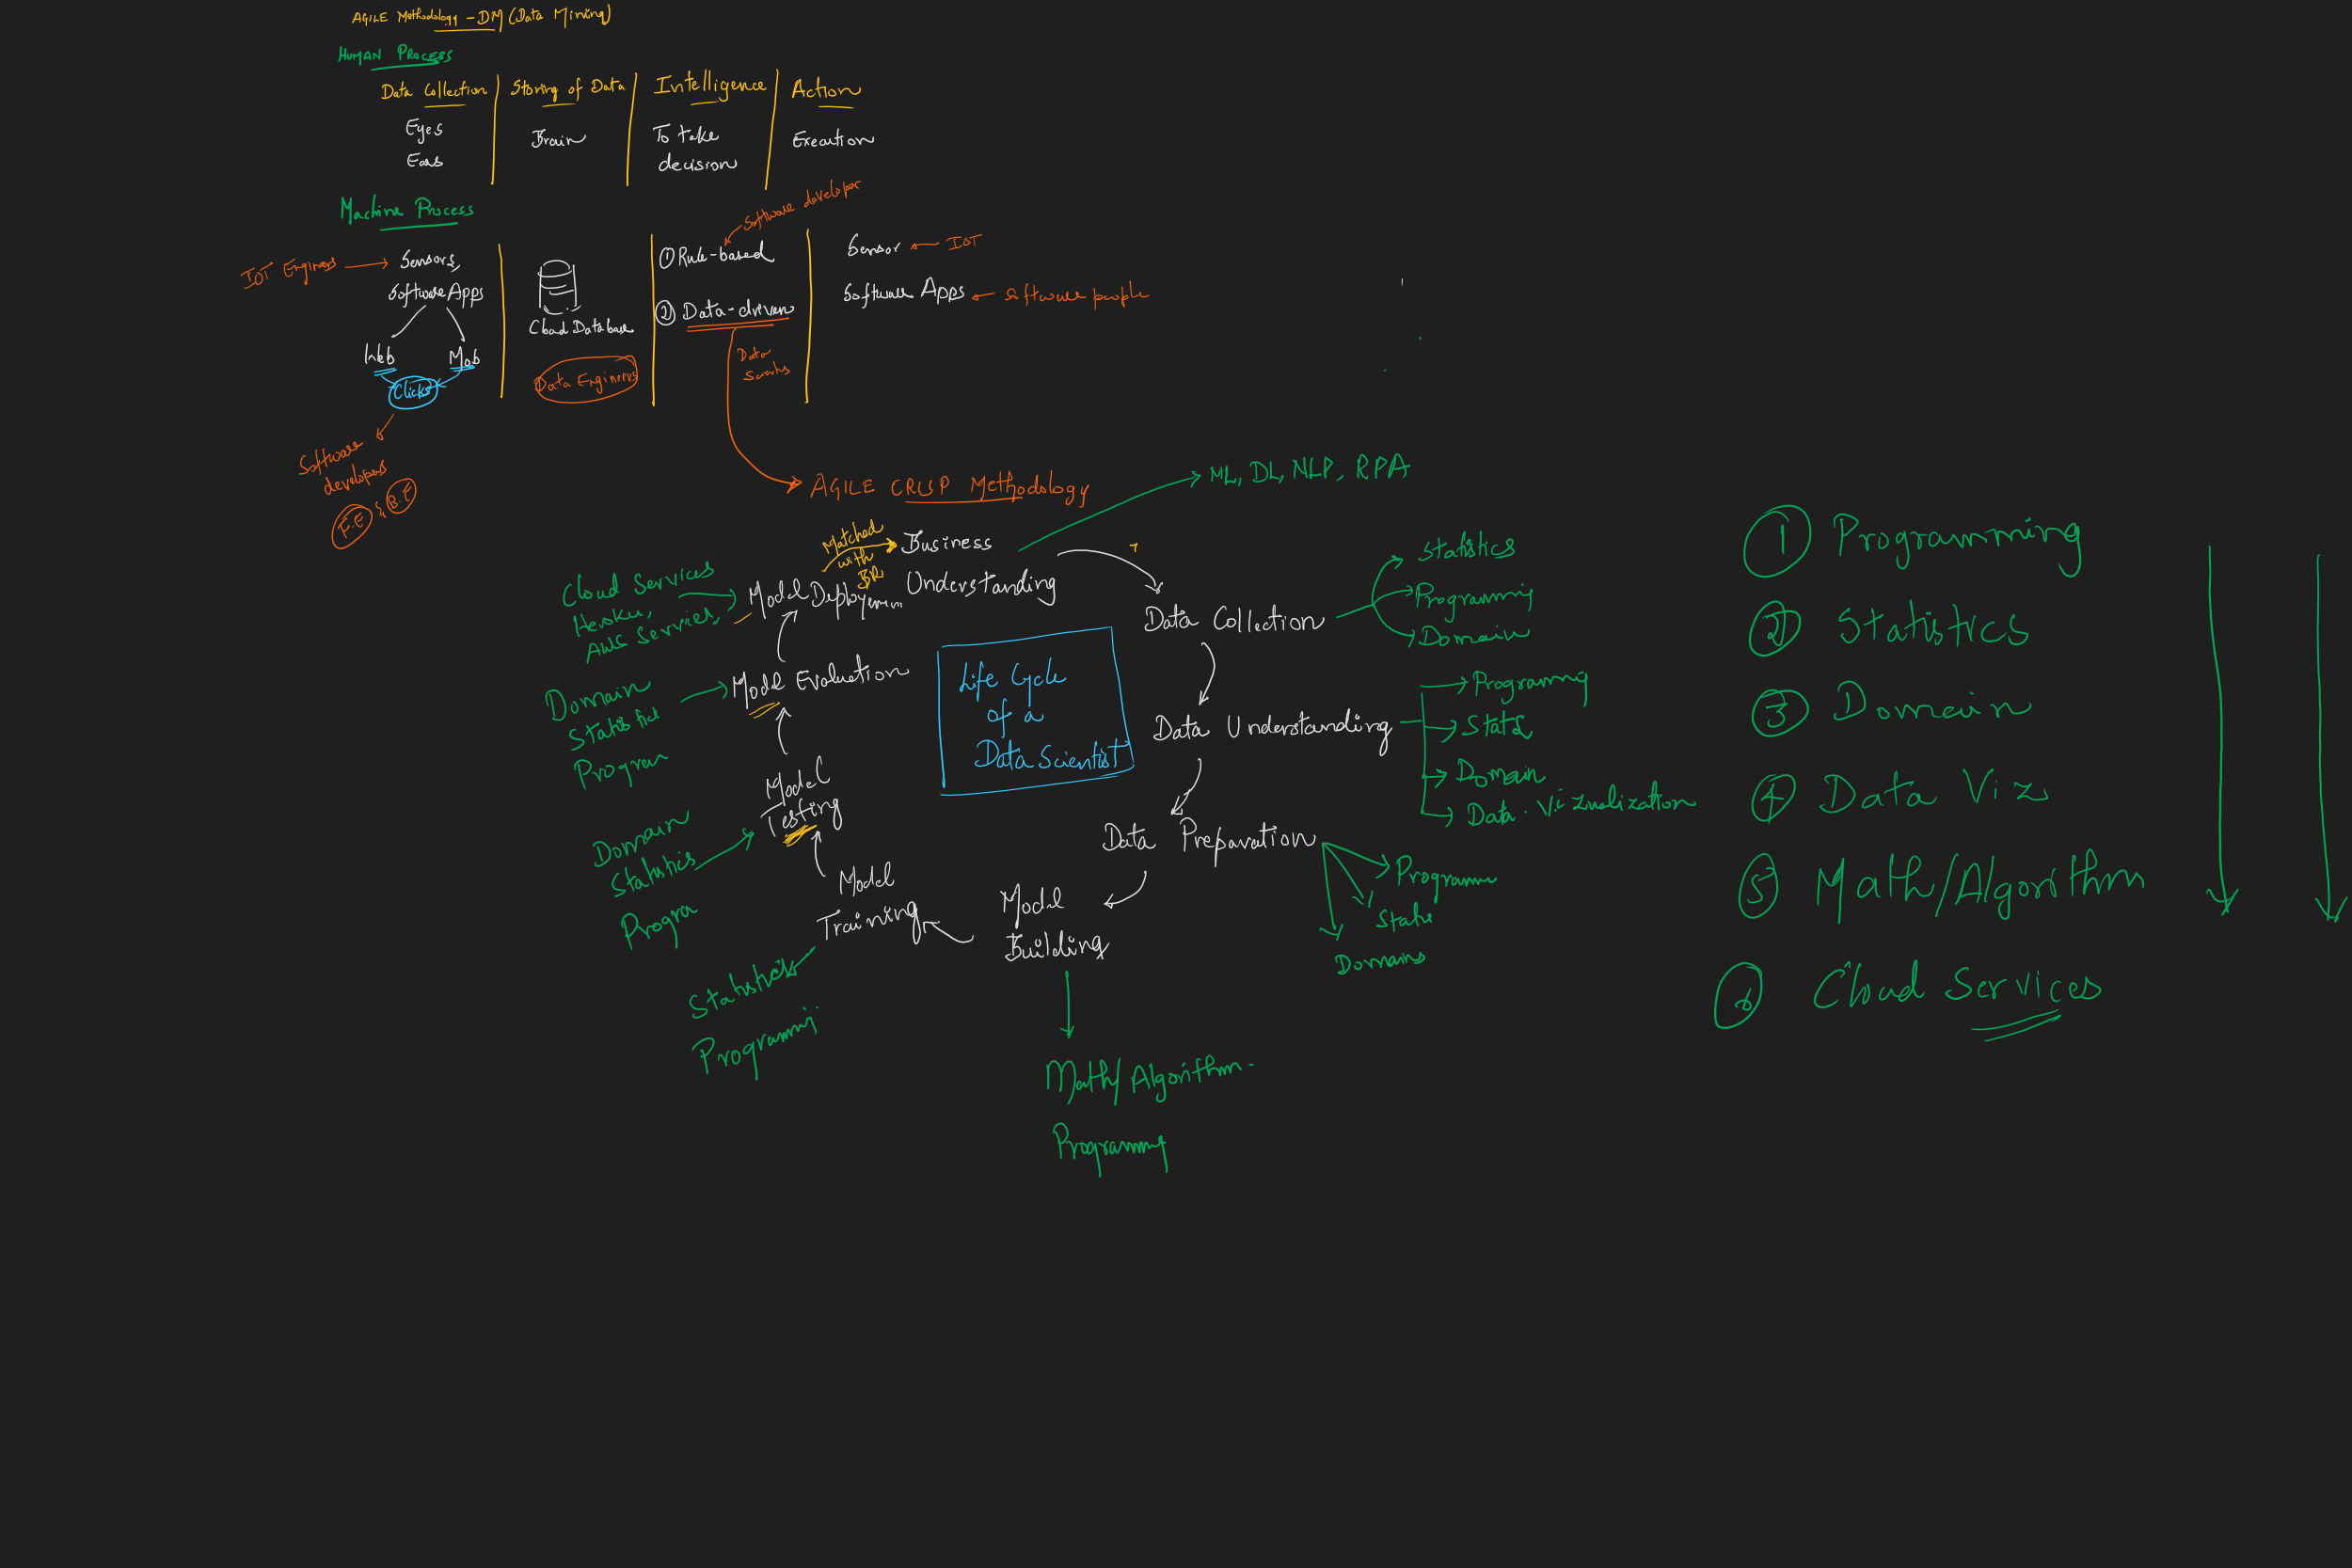 AGILE Methodology - DM (Data Mining)
HUMAN PROCESS
Data Collection
Eyes
Ears
Storing of Data
Brain
Intelligence
To take
decision
Action
Execution
Machine Process
IOT Engineers
Sensors,
Software Apps
Web
Mob
Clicks
Software
developers
F.E & B.E
Cloud Database
Data Engineers
Software developer
① Rule-based
② Data-driven
Data
Sensor
IOT
Software Apps
Software people
AGILE CRISP Methodology
Matched
with
BR
Business
Understanding
ML, DL, NLP, RPA
Data Collection
Statistics
Programming
Domain
Data Understanding
Programming
Stats
Domain
Data Vizualization
Data Preparation
Programm
Stats
Domains
Model
Building
Math/Algorithm
Programming
Model
Training
Statistics
Programming
Model
Testing
Domain
Statistics
Progra
Model Evaluation
Domain
Program
Model Deployment
Cloud Services
Heroku,
AWS Services,
Life Cycle
of a
Data Scientist
① Programming
② Statistics
③ Domain
④ Data Viz
⑤ Math/Algorithm
⑥ Cloud Services